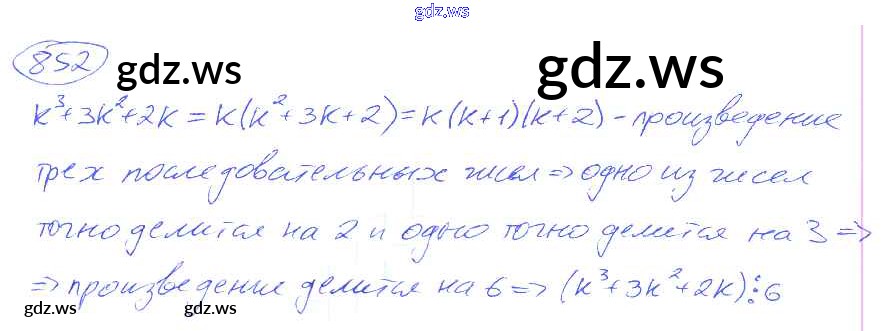 gdz.ws
852 gdz.ws gdz.ws
k³+3k²+2k = k(k²+3k+2) = k(k+1)(k+2) - произведение
трех последовательных чисел => одно из чисел
точно делится на 2 и одно точно делится на 3 =>
=> произведение делится на 6 => (k³+3k²+2k)⋮6
gdz.ws gdz.ws